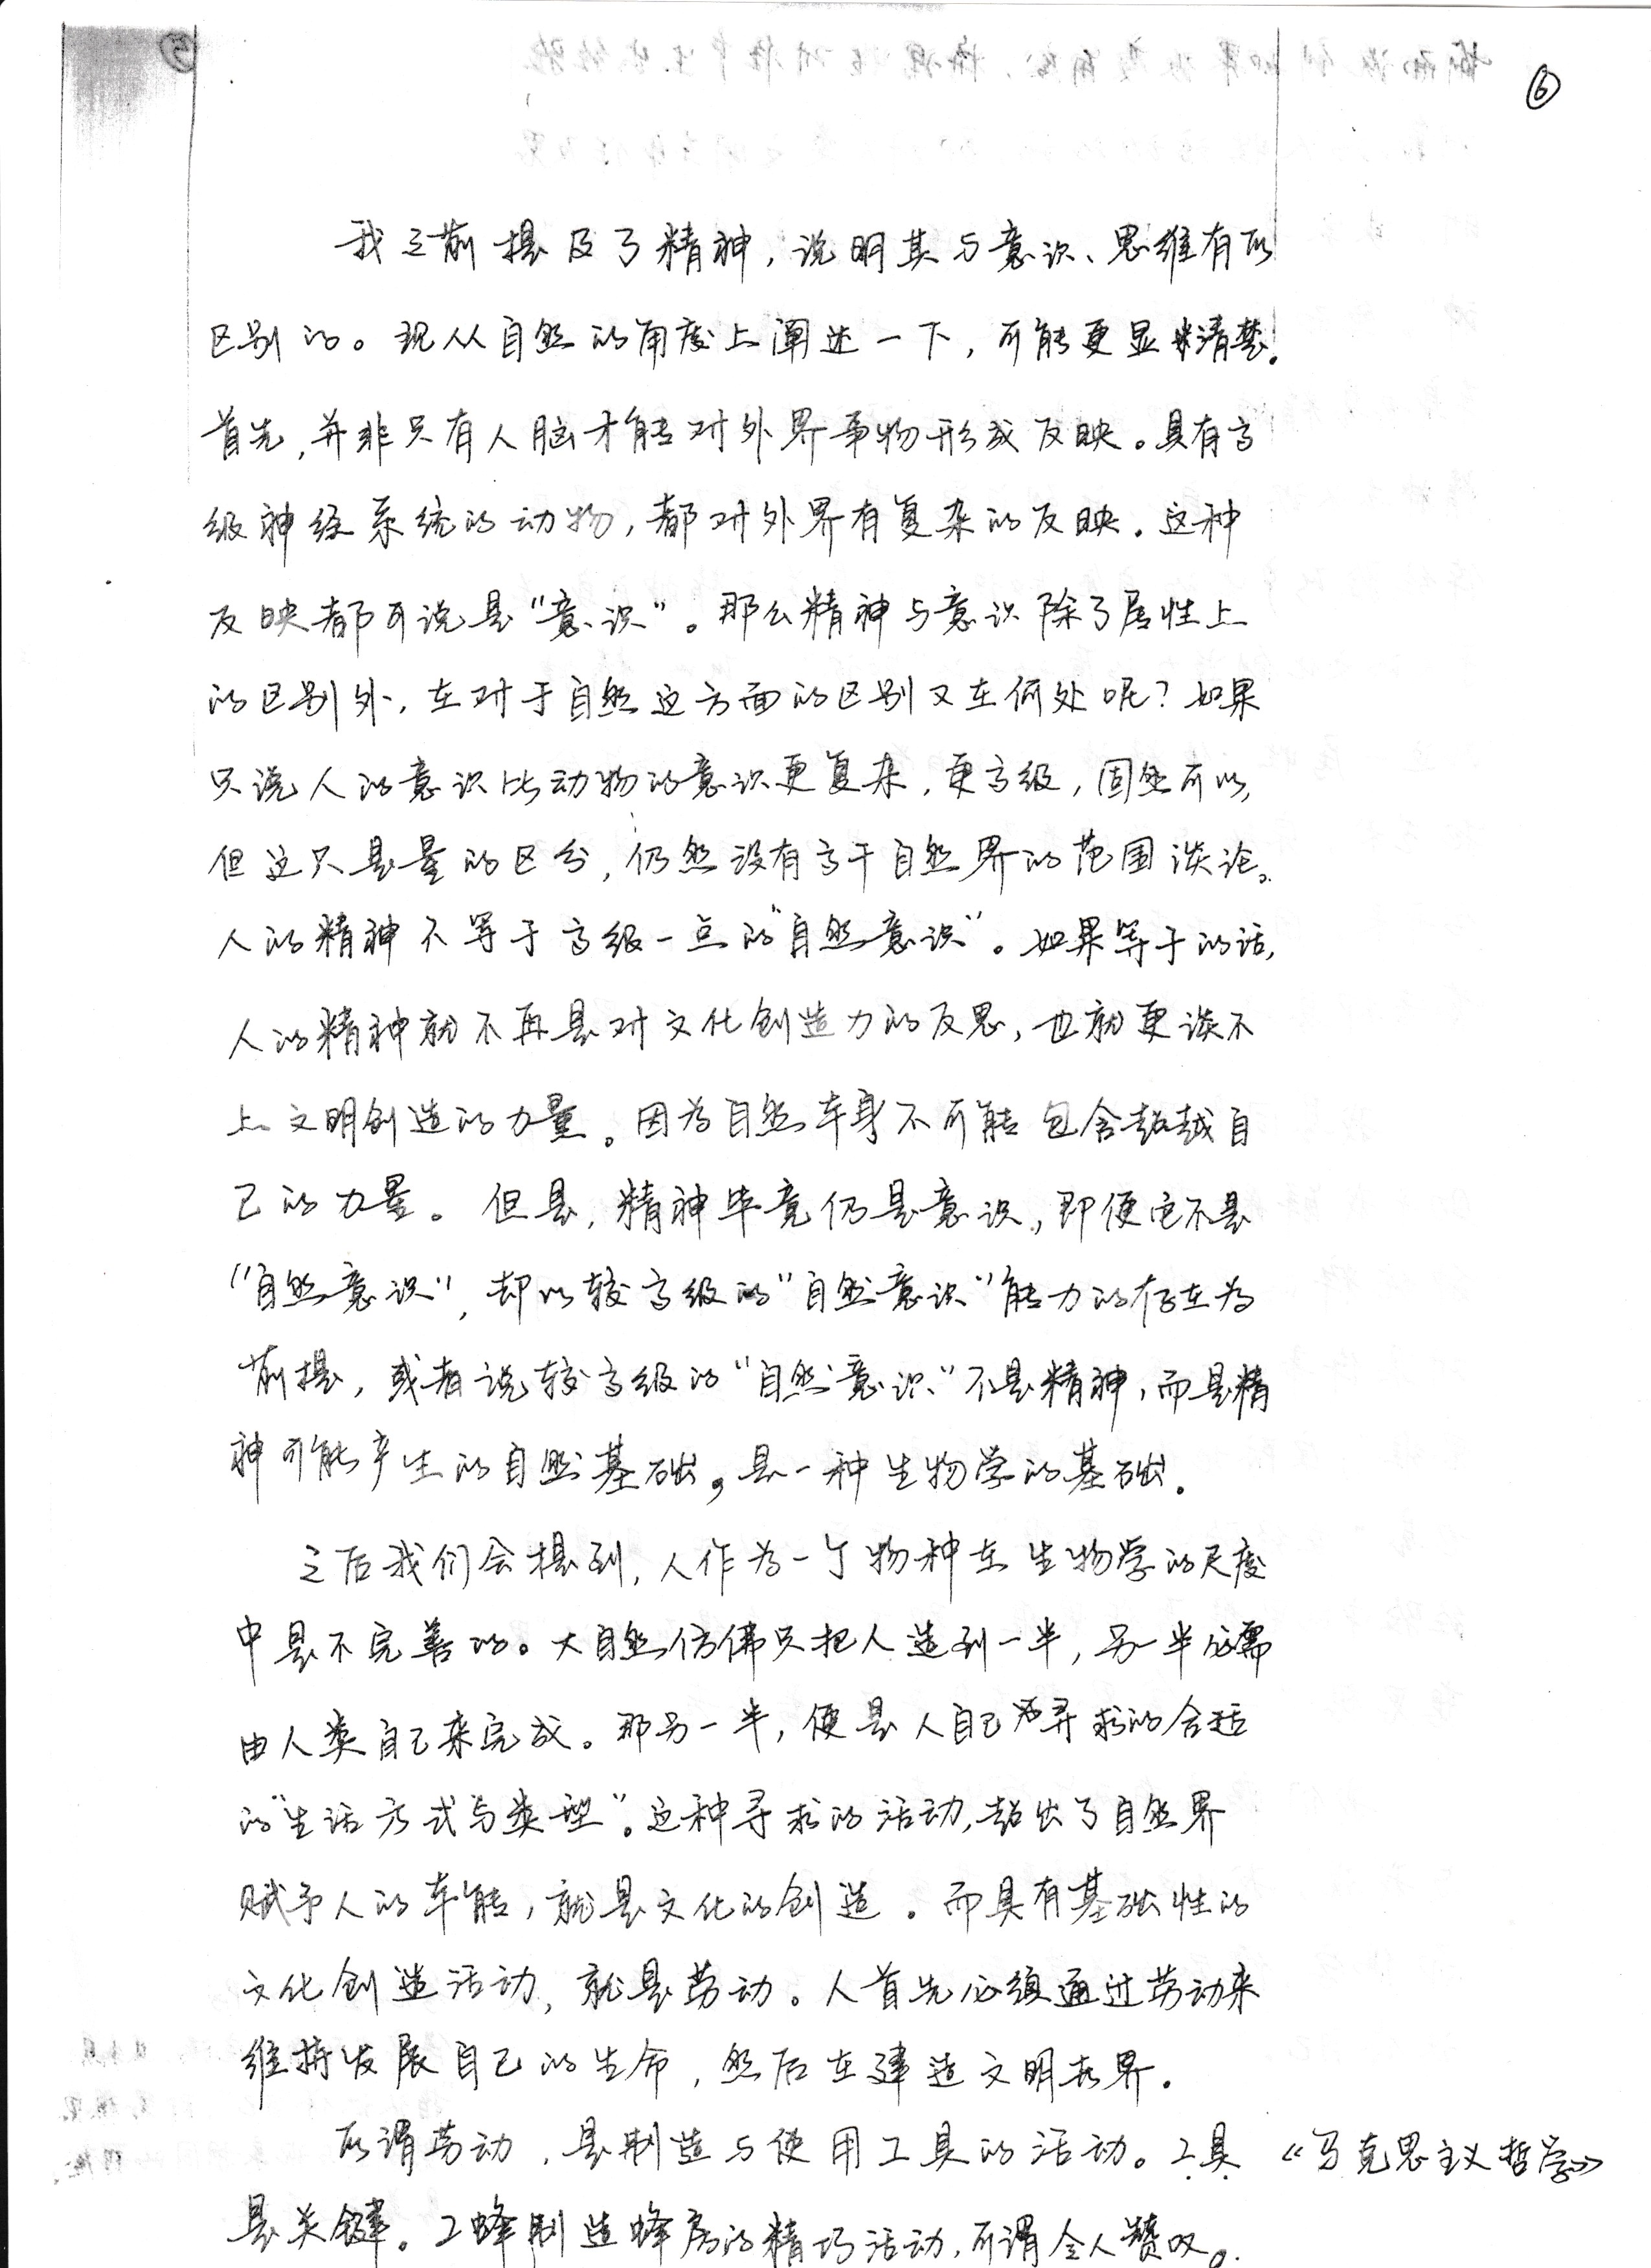 ⑥
我之前提及了精神，说明其与意识、思维有所
区别的。现从自然的角度上阐述一下，可能更显清楚。
首先，并非只有人脑才能对外界事物形成反映。具有高
级神经系统的动物，都对外界有复杂的反映。这种
反映都可说是“意识”。那么精神与意识除了属性上
的区别外，在对于自然这方面的区别又在何处呢？如果
只说人的意识比动物的意识更复杂，更高级，固然可以，
但这只是量的区分，仍然没有高于自然界的范围谈论。
人的精神不等于高级一点的“自然意识”。如果等于的话，
人的精神就不再是对文化创造力的反思，也就更谈不
上文明创造的力量。因为自然本身不可能包含超越自
己的力量。但是，精神毕竟仍是意识，即便它不是
“自然意识”，却以较高级的“自然意识”能力的存在为
前提，或者说较高级的“自然意识”不是精神，而是精
神可能产生的自然基础，是一种生物学的基础。
之后我们会提到，人作为一个物种在生物学的尺度
中是不完善的。大自然仿佛只把人造到一半，另一半必需
由人类自己来完成。那另一半，便是人自己为寻求的合适
的“生活方式与类型”。这种寻求的活动，超出了自然界
赋予人的本能，就是文化的创造。而具有基础性的
文化创造活动，就是劳动。人首先必须通过劳动来
维持发展自己的生命，然后在建造文明世界。
所谓劳动，是制造与使用工具的活动。工具 《马克思主义哲学》
是关键。工蜂制造蜂房的精巧活动，可谓令人赞叹。